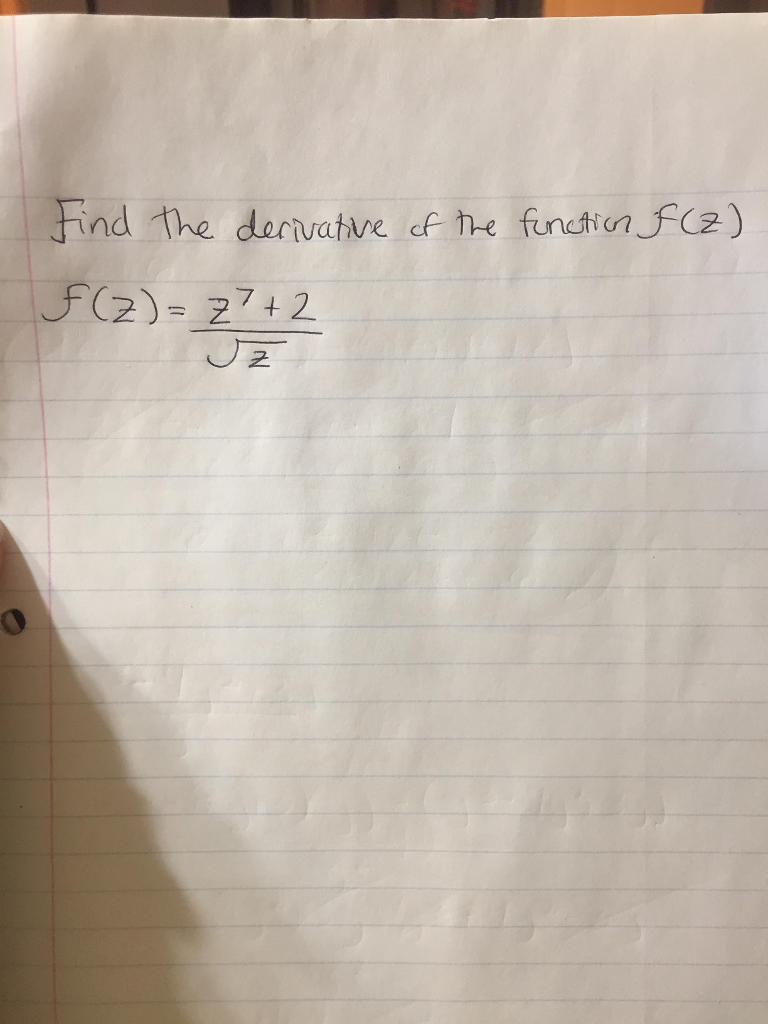 Find the derivative of the function f(z)
f(z) = z⁷ + 2
√z